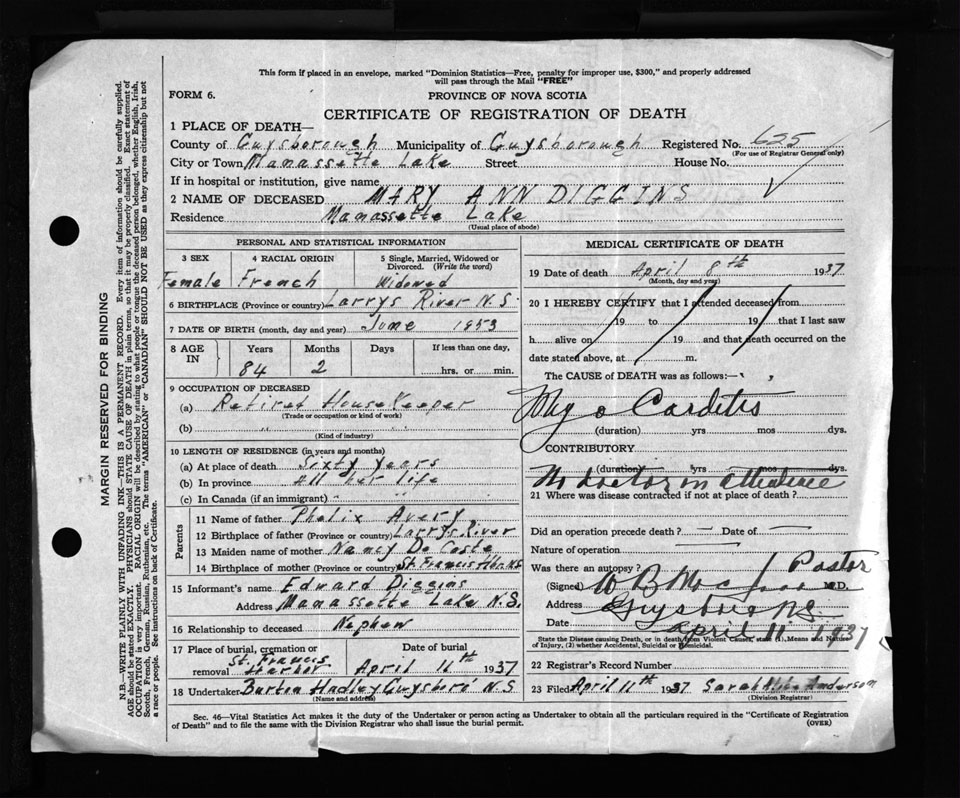 This form if placed in an envelope, marked "Dominion Statistics—Free, penalty for improper use, $300," and properly addressed
will pass through the Mail "FREE"
FORM 6.
PROVINCE OF NOVA SCOTIA
CERTIFICATE OF REGISTRATION OF DEATH
1 PLACE OF DEATH—
County of Guysborough Municipality of Guysborough Registered No. 625
(For use of Registrar General only)
City or Town Manassette Lake Street House No.
If in hospital or institution, give name
2 NAME OF DECEASED MARY ANN DIGGINS
Residence Manassette Lake
(Usual place of abode)
PERSONAL AND STATISTICAL INFORMATION
3 SEX 4 RACIAL ORIGIN 5 Single, Married, Widowed or Divorced. (Write the word)
Female French Widowed
6 BIRTHPLACE (Province or country) Larrys River N.S.
7 DATE OF BIRTH (month, day and year) June 1853
8 AGE IN Years Months Days If less than one day,
84 2 hrs. or min.
9 OCCUPATION OF DECEASED
(a) Retired HouseKeeper
(Trade or occupation or kind of work)
(b) " "
(Kind of industry)
10 LENGTH OF RESIDENCE (in years and months)
(a) At place of death Sixty Years
(b) In province All her life
(c) In Canada (if an immigrant) " "
Parents
11 Name of father Phelix Avery
12 Birthplace of father (Province or country) Larrys River
13 Maiden name of mother Nancy De Coste
14 Birthplace of mother (Province or country) St. Francis Hbr. N.S.
15 Informant's name Edward Diggins
Address Manassette Lake N.S.
16 Relationship to deceased Nephew
17 Place of burial, cremation or removal Date of burial
St. Francis Harbor April 11th 1937
18 Undertaker Burton Hadley Guysboro N.S
(Name and address)
MEDICAL CERTIFICATE OF DEATH
19 Date of death April 8th 1937
(Month, day and year)
20 I HEREBY CERTIFY that I attended deceased from
19 to 19 that I last saw
h alive on 19 and that death occurred on the
date stated above, at m.
The CAUSE of DEATH was as follows:—
Myo Carditis
(duration) yrs mos dys.
CONTRIBUTORY
(duration) yrs mos dys.
No doctor in attendance
21 Where was disease contracted if not at place of death?
Did an operation precede death? — Date of —
Nature of operation —
Was there an autopsy? Pastor
(Signed) W B M.D.
Address Guysboro N.S.
Date April 11 1937
State the Disease causing Death, or in death from Violent Causes, state (1) Means and Nature
of Injury, (2) whether Accidental, Suicidal or Homicidal.
22 Registrar's Record Number
23 Filed April 11th 1937 Sarah Anderson
(Division Registrar)
Sec. 46—Vital Statistics Act makes it the duty of the Undertaker or person acting as Undertaker to obtain all the particulars required in the "Certificate of Registration
of Death" and to file the same with the Division Registrar who shall issue the burial permit. (OVER)
MARGIN RESERVED FOR BINDING
N.B.—WRITE PLAINLY WITH UNFADING INK—THIS IS A PERMANENT RECORD. Every item of information should be carefully supplied.
AGE should be stated EXACTLY. PHYSICIANS should STATE CAUSE OF DEATH in plain terms, so that it may be properly classified. Exact statement of
OCCUPATION is very important. RACIAL ORIGIN will be described by stating to what people or tongue the deceased person belonged, whether English, Irish,
Scotch, French, German, Russian, Ruthenian, etc. The terms "AMERICAN" or "CANADIAN" SHOULD NOT BE USED as they express citizenship but not
a race or people. See instructions on back of Certificate.